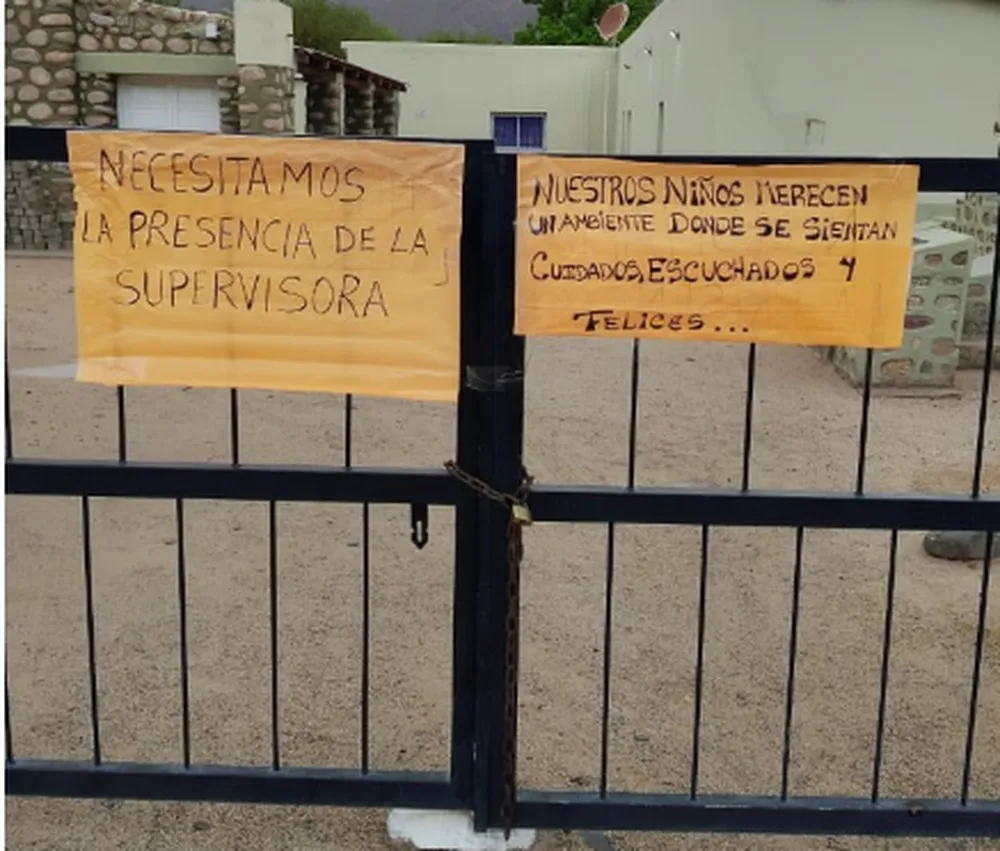 NECESITAMOS
LA PRESENCIA DE LA
SUPERVISORA
NUESTROS NIÑOS MERECEN
UN AMBIENTE DONDE SE SIENTAN
CUIDADOS, ESCUCHADOS Y
FELICES...